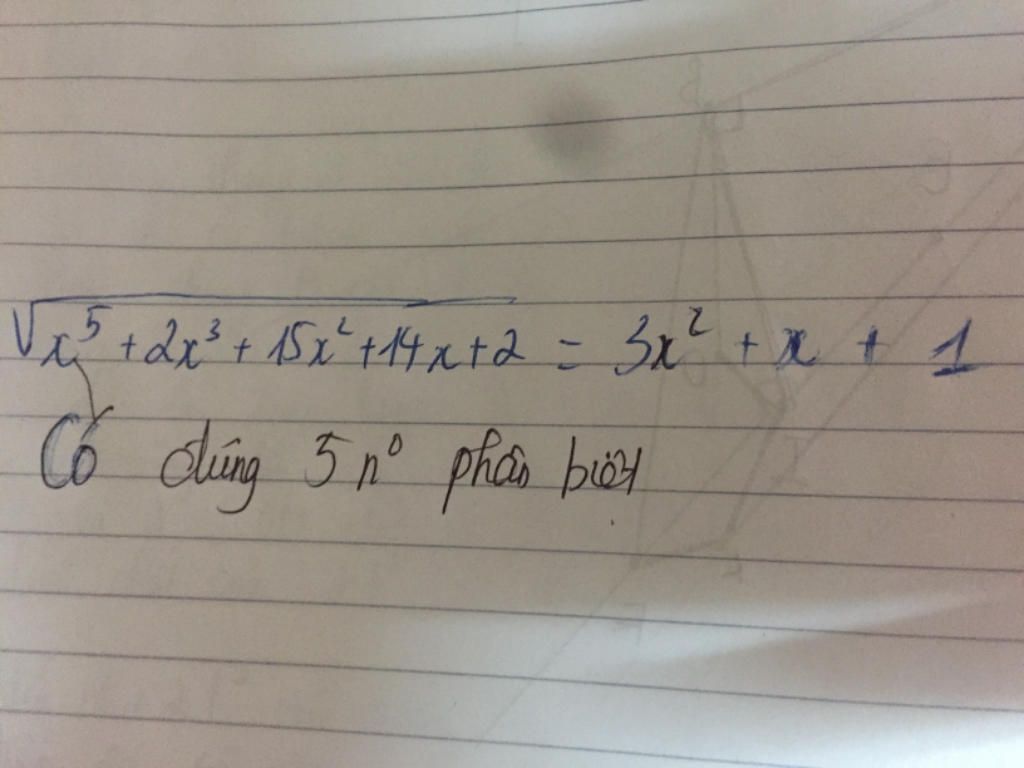 √x⁵ + 2x³ + 15x² + 14x + 2 = 3x² + x + 1
Có đúng 5 n⁰ phân biệt